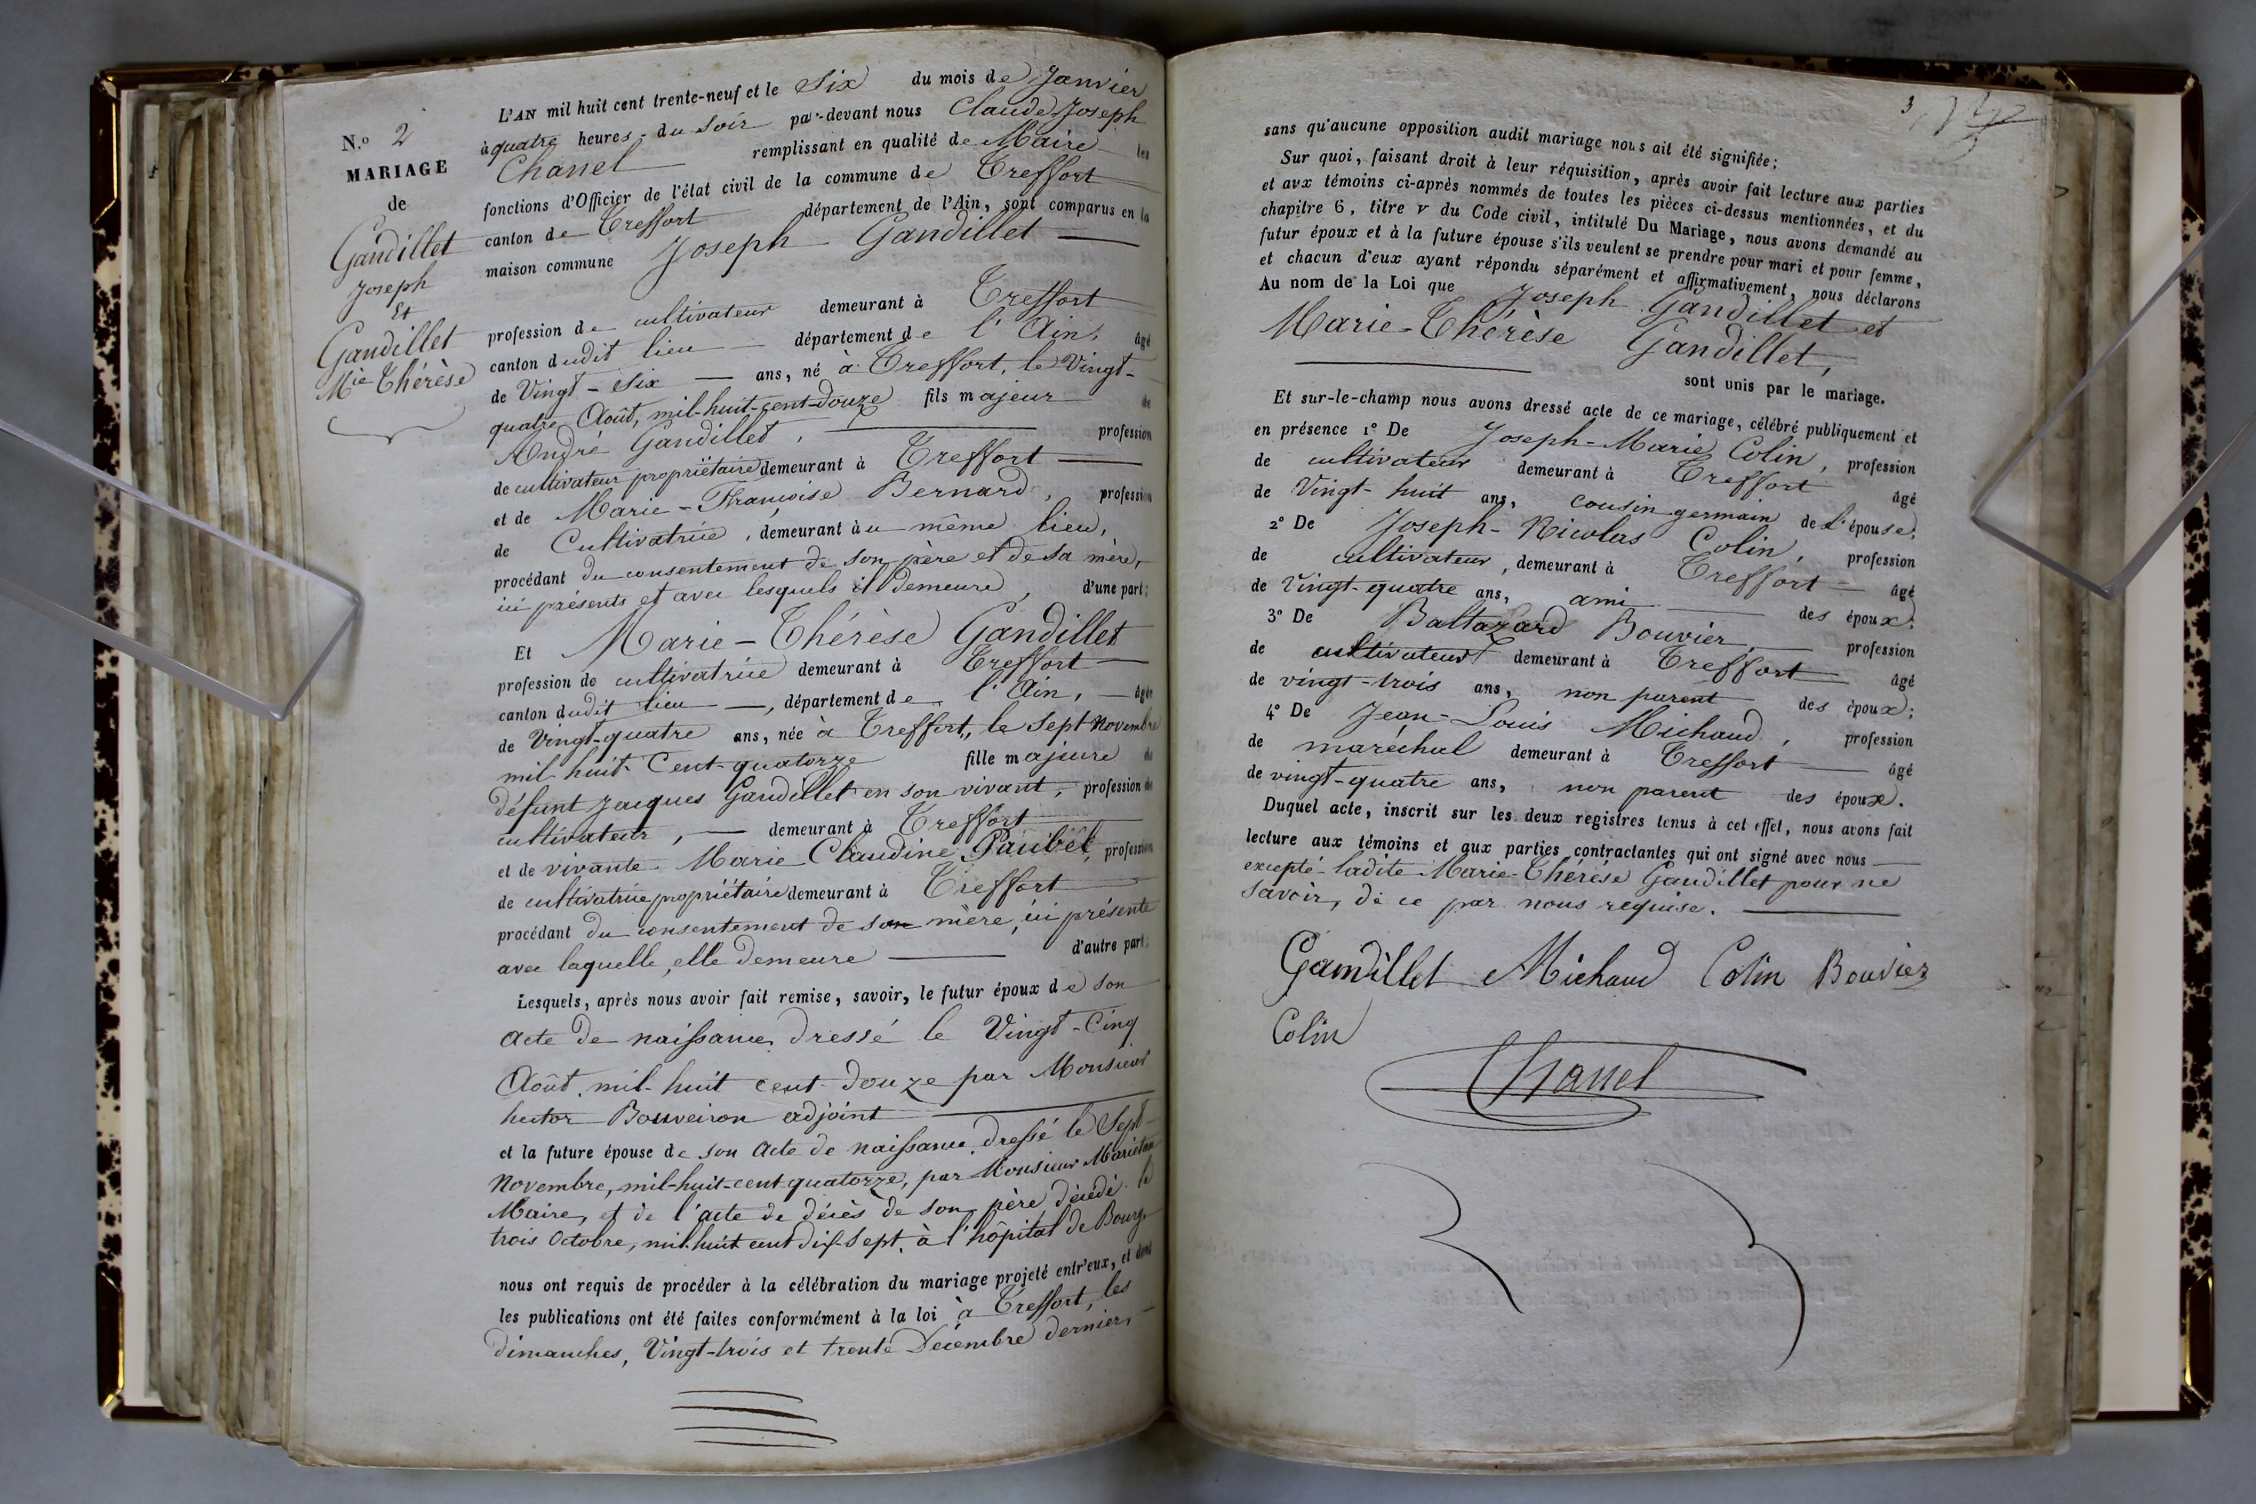 N.o 2
MARIAGE
de
Gandillet
Joseph
Et
Gandillet
Mie Thérèse
L'AN mil huit cent trente-neuf et le Six du mois de Janvier
à quatre heures du soir par-devant nous Claude Joseph
Chanel remplissant en qualité de Maire les
fonctions d'Officier de l'état civil de la commune de Treffort
canton de Treffort département de l'Ain, sont comparus en la
maison commune Joseph Gandillet
profession de cultivateur demeurant à Treffort
canton dudit lieu département de l'Ain, âgé
de Vingt-Six ans, né à Treffort, le Vingt-
quatre Août, mil-huit-cent-douze fils majeur de
André Gandillet, profession
de cultivateur propriétaire demeurant à Treffort
et de Marie-Françoise Bernard, profession
de Cultivatrice, demeurant à u même lieu,
procédant du consentement de son père et de sa mère,
ici présents et avec lesquels il demeure, d'une part;
Et Marie-Thérèse Gandillet
profession de cultivatrice demeurant à Treffort
canton dudit lieu, département de l'Ain, âgée
de Vingt-quatre ans, née à Treffort, le Sept Novembre
mil huit Cent-quatorze fille majeure de
défunt Jacques Gandillet en son vivant, profession de
cultivateur, demeurant à Treffort
et de vivante Marie Claudine Paubel, profession
de cultivatrice propriétaire demeurant à Treffort
procédant du consentement de son mère, ici présente
avec laquelle, elle demeure d'autre part;
Lesquels, après nous avoir fait remise, savoir, le futur époux de son
acte de naissance dressé le Vingt-Cinq
Août, mil-huit cent douze par Monsieur
hector Bouveiron adjoint
et la future épouse de son acte de naissance dressé le Sept
Novembre, mil-huit-cent quatorze, par Monsieur
Maire, et de l'acte de décès de son père décédé le
trois Octobre, mil-huit cent dix-Sept, à l'hôpital de Bourg,
nous ont requis de procéder à la célébration du mariage projeté entr'eux, et dont
les publications ont été faites conformément à la loi à Treffort, les
dimanches, Vingt-trois et trente Décembre dernier,
3
sans qu'aucune opposition audit mariage nous ait été signifiée;
Sur quoi, faisant droit à leur réquisition, après avoir fait lecture aux parties
et aux témoins ci-après nommés de toutes les pièces ci-dessus mentionnées, et du
chapitre 6, titre v du Code civil, intitulé Du Mariage, nous avons demandé au
futur époux et à la future épouse s'ils veulent se prendre pour mari et pour femme,
et chacun d'eux ayant répondu séparément et affirmativement, nous déclarons
Au nom de la Loi que Joseph Gandillet et
Marie-Thérèse Gandillet,
sont unis par le mariage.
Et sur-le-champ nous avons dressé acte de ce mariage, célébré publiquement et
en présence 1° De Joseph-Marie Colin, profession
de cultivateur demeurant à Treffort âgé
de Vingt-huit ans, cousin germain de L'épouse;
2° De Joseph-Nicolas Colin, profession
de cultivateur, demeurant à Treffort âgé
de Vingt-quatre ans, ami des époux;
3° De Baltazard Bouvier, profession
de cultivateur demeurant à Treffort âgé
de vingt-trois ans, non parent des époux;
4° De Jean-Louis Michaud, profession
de maréchal demeurant à Treffort âgé
de vingt-quatre ans, non parent des époux.
Duquel acte, inscrit sur les deux registres tenus à cet effet, nous avons fait
lecture aux témoins et aux parties contractantes qui ont signé avec nous
excepté ladite Marie-Thérèse Gandillet pour ne
savoir, de ce par nous requise.
Gandillet Michaud Colin Bouvier
Colin
Chanel